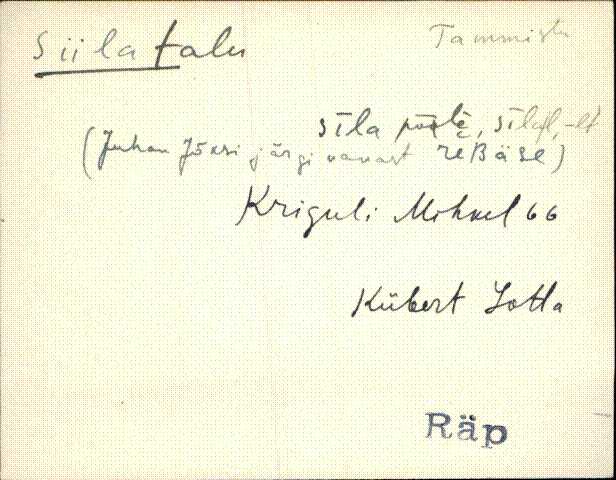 Siila talu Tammistu
sīla poolè, sīlal, -lt
(Juhan Jõksi järgi vanast reBäse)
Kriguli Mihkel 66
Kübert Lotta
Räp